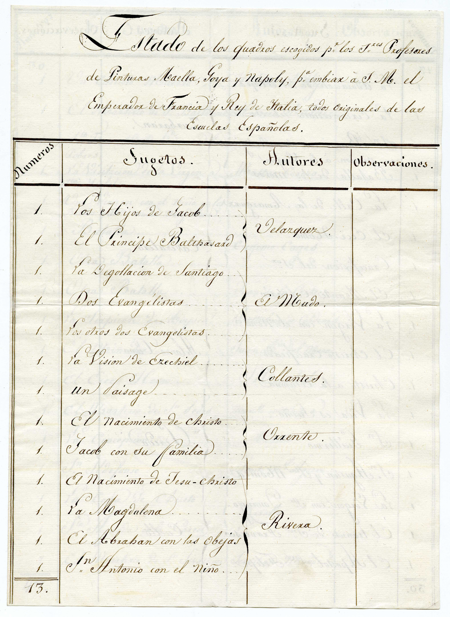 Estado de los quadros escogidos p.r los S.res Profesores
de Pinturas Maella, Goya y Napoly, p.a embiar à S. M. el
Emperador de Francia y Rey de Italia, todos originales de las
Escuelas Españolas.
Numeros Sugetos. Autores Observaciones.
1. Los Hijos de Jacob
1. El Principe Balthasard
Velazquez.
1. La Degollacion de Santiago
1. Dos Evangelistas
El Mudo.
1. Los otros dos Evangelistas
1. La Vision de Ezechiel
1. un Paisage
Collantes.
1. El Nacimiento de Christo
1. Jacob con su familia
Orrente.
1. El Nacimiento de Jesu-Christo
1. La Magdalena
1. El Abrahan con las Obejas
1. S.n Antonio con el Niño
Rivera.
13.